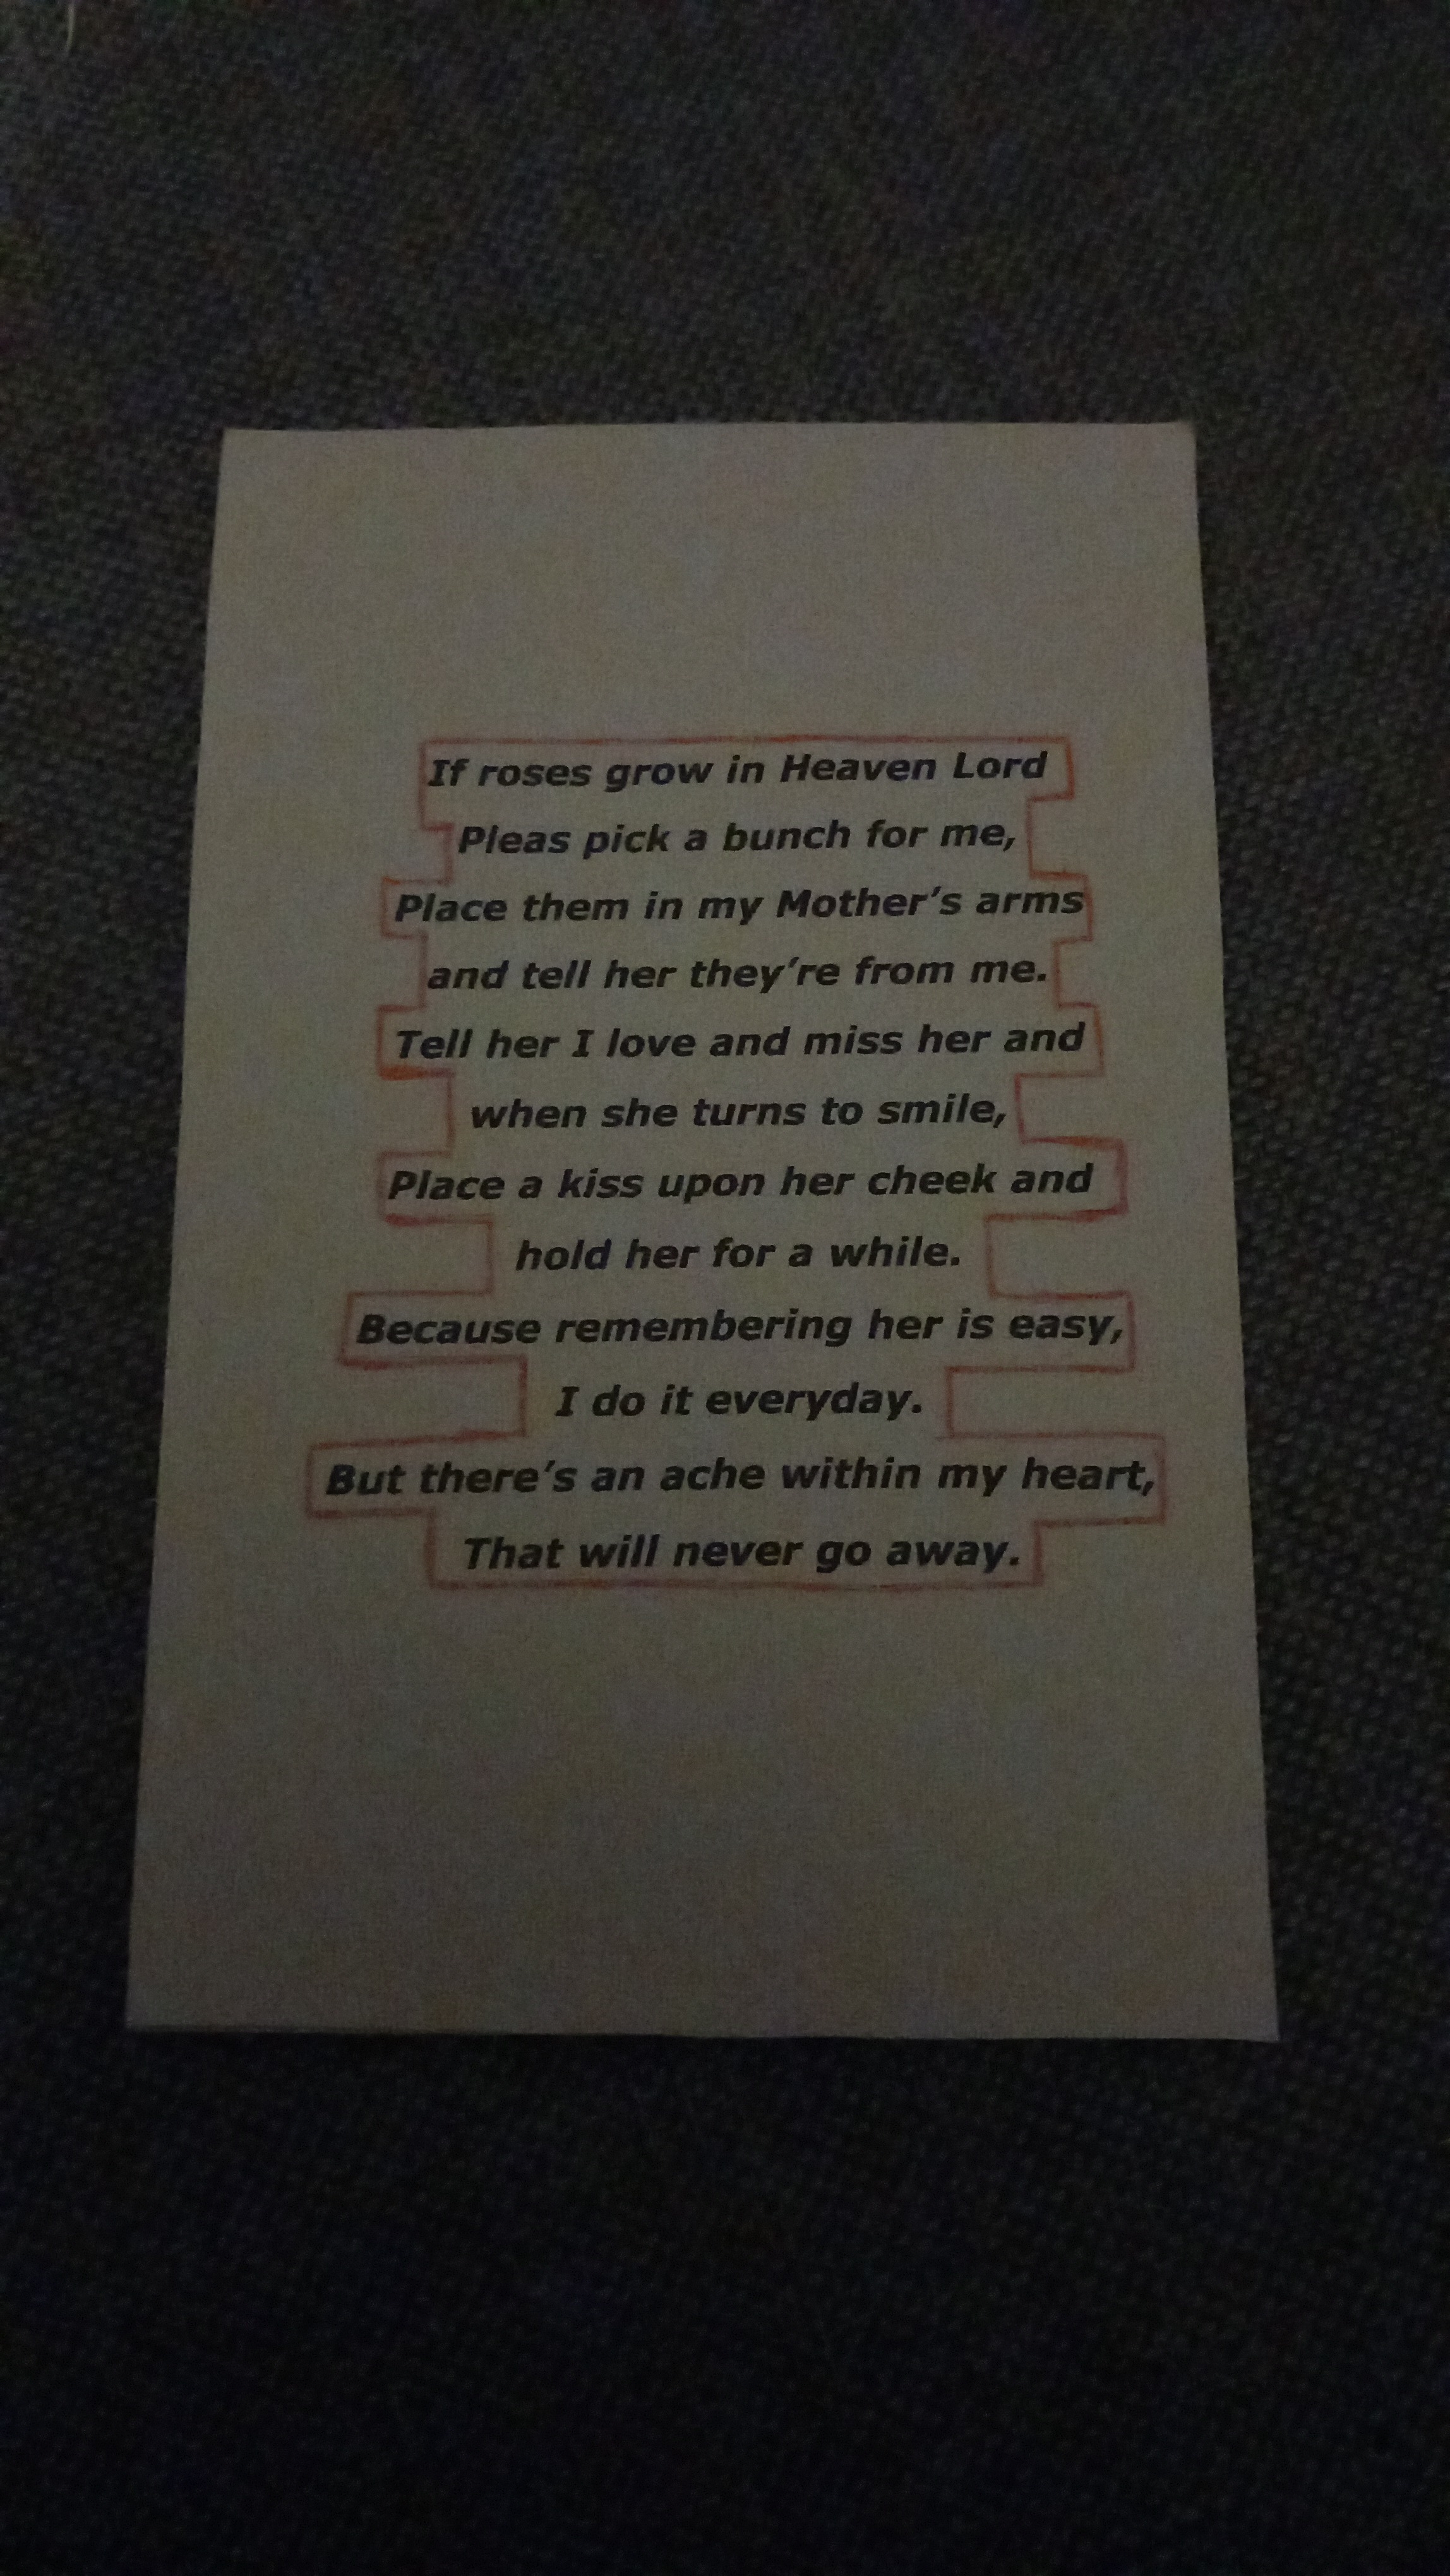 If roses grow in Heaven Lord
Pleas pick a bunch for me,
Place them in my Mother’s arms
and tell her they’re from me.
Tell her I love and miss her and
when she turns to smile,
Place a kiss upon her cheek and
hold her for a while.
Because remembering her is easy,
I do it everyday.
But there’s an ache within my heart,
That will never go away.